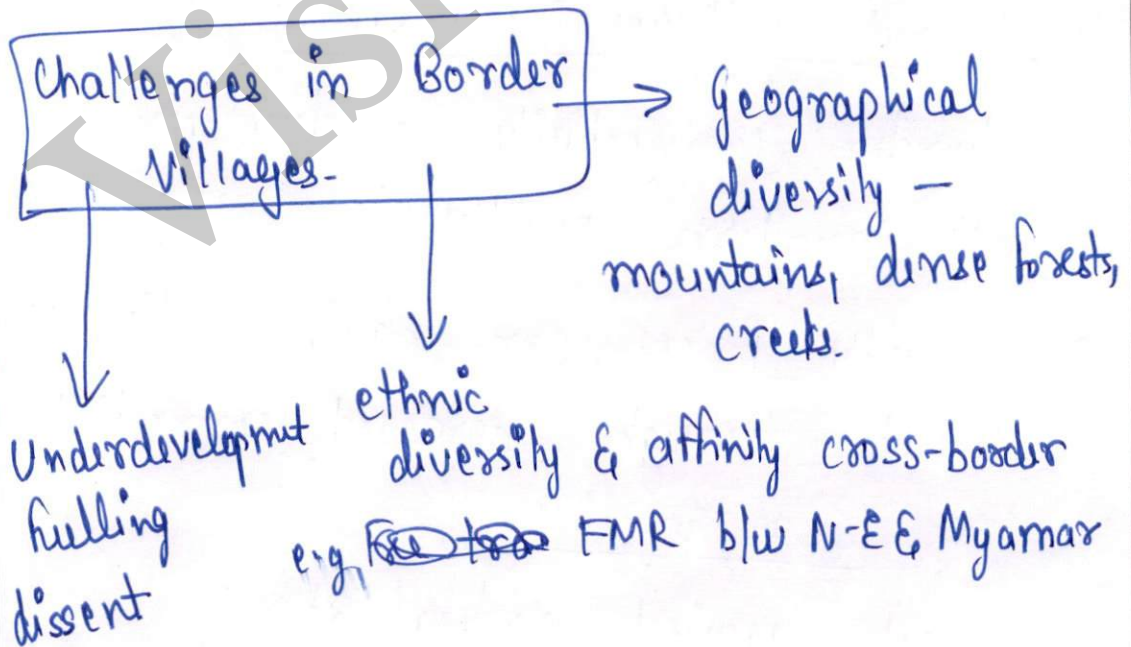 Vis
Challenges in Border
Villages-
Geographical
diversity -
mountains, dense forests,
creeks.
Underdevelopmut
fuelling
dissent
ethnic
diversity & affinity cross-border
e.g, FMR b/w N-E & Myamar